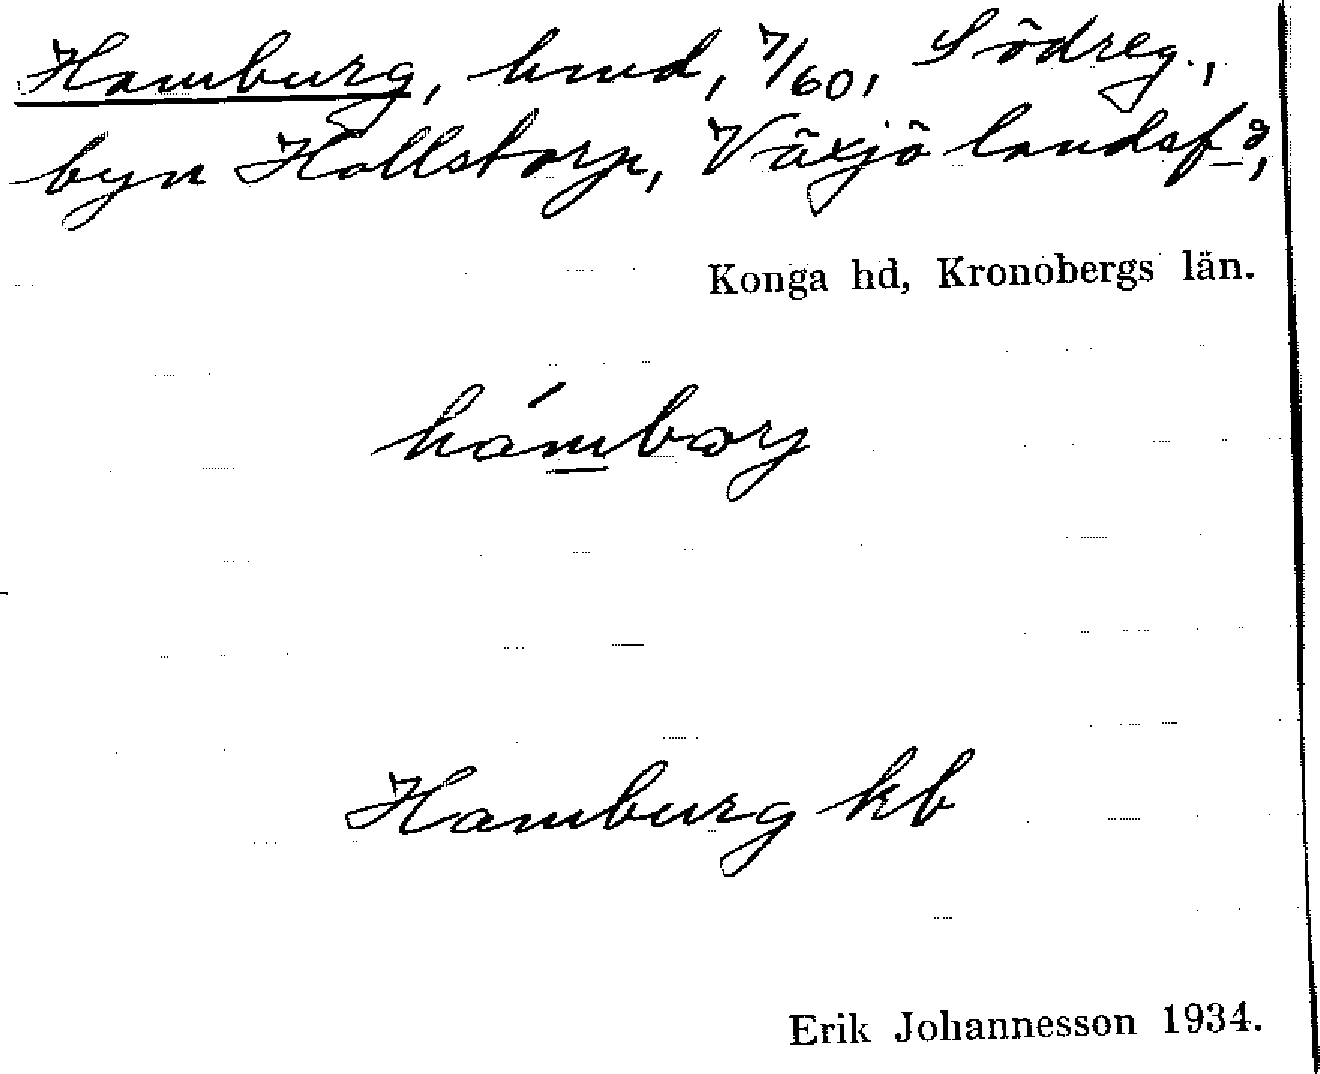 Hamburg, hmd, 7/60, Södreg.,
byn Hollstorp, Växjö landsf_d,
Konga hd, Kronobergs län.
hámborj
Hamburg kb
Erik Johannesson 1934.